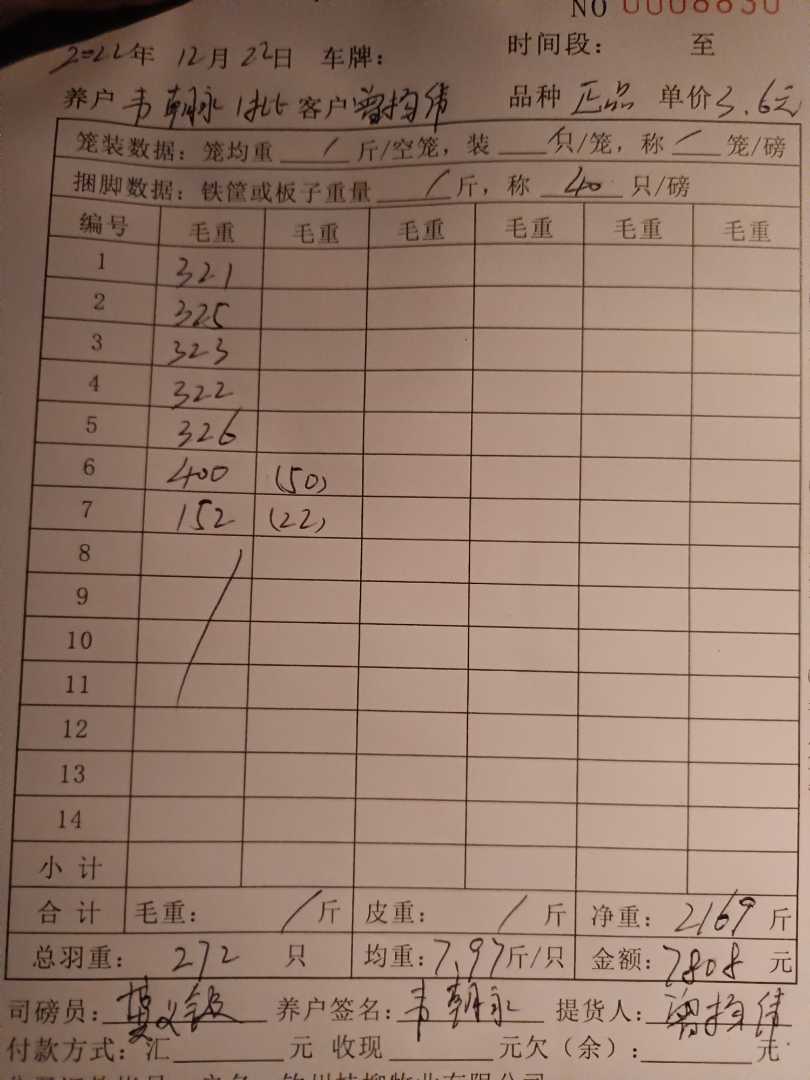 NO 0008830
2022年 12月 22日 车牌： 时间段： 至
养户 韦朝永 1批 客户 曾均伟 品种 正品 单价 3.6元
笼装数据：笼均重 / 斤/空笼，装 / 只/笼，称 / 笼/磅
捆脚数据：铁筐或板子重量 / 斤，称 40 只/磅
编号 毛重 毛重 毛重 毛重 毛重 毛重
1 321
2 325
3 323
4 322
5 326
6 400 (50)
7 152 (22)
8
9
10
11
12
13
14
小计
合计 毛重： / 斤 皮重： / 斤 净重：2169 斤
总羽重：272 只 均重：7.97斤/只 金额：7808 元
司磅员： 养户签名：韦朝永 提货人：曾均伟
付款方式：汇 元 收现 元欠（余）： 元